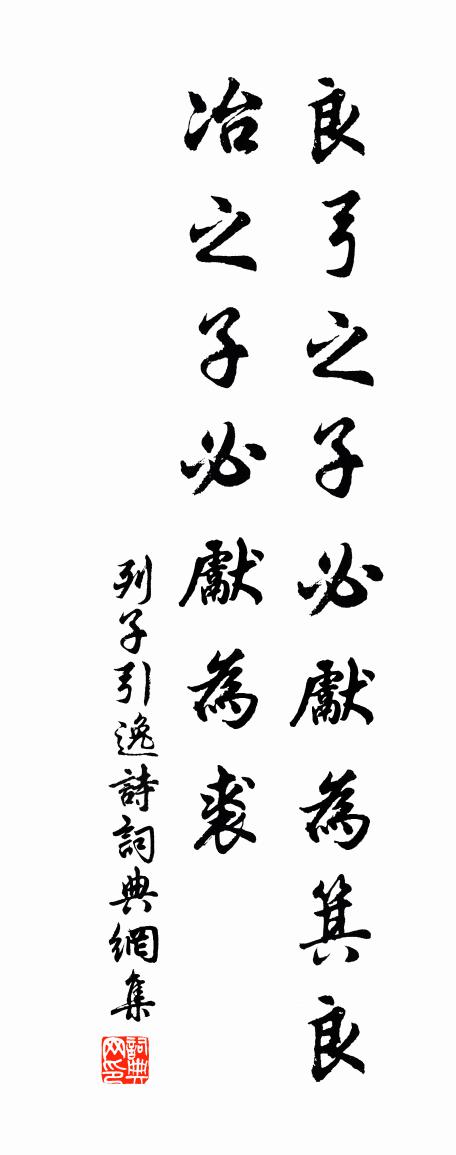 良弓之子必獻為箕良
冶之子必獻為裘
列子引逸詩詞典網集
詞典网印